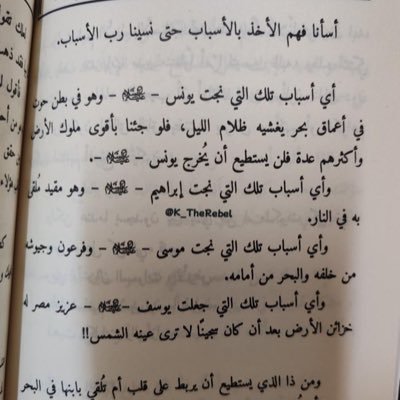 أسأنا فهم الأخذ بالأسباب حتى نسينا رب الأسباب.
أي أسباب تلك التي نجت يونس - ﷺ - وهو في بطن حوت
في أعماق بحر يغشيه ظلام الليل، فلو جئنا بأقوى ملوك الأرض
وأكثرهم عدة فلن يستطيع أن يُخرج يونس - ﷺ -.
وأي أسباب تلك التي نجت إبراهيم - ﷺ - وهو مقيد مُلقى
به في النار.
@K_TheRebel
وأي أسباب تلك التي نجت موسى - ﷺ - وفرعون وجيوشه
من خلفه والبحر من أمامه.
وأي أسباب تلك التي جعلت يوسف - ﷺ - عزيز مصر له
خزائن الأرض بعد أن كان سجينًا لا ترى عينه الشمس!!
ومن ذا الذي يستطيع أن يربط على قلب أم تُلقي بابنها في البحر